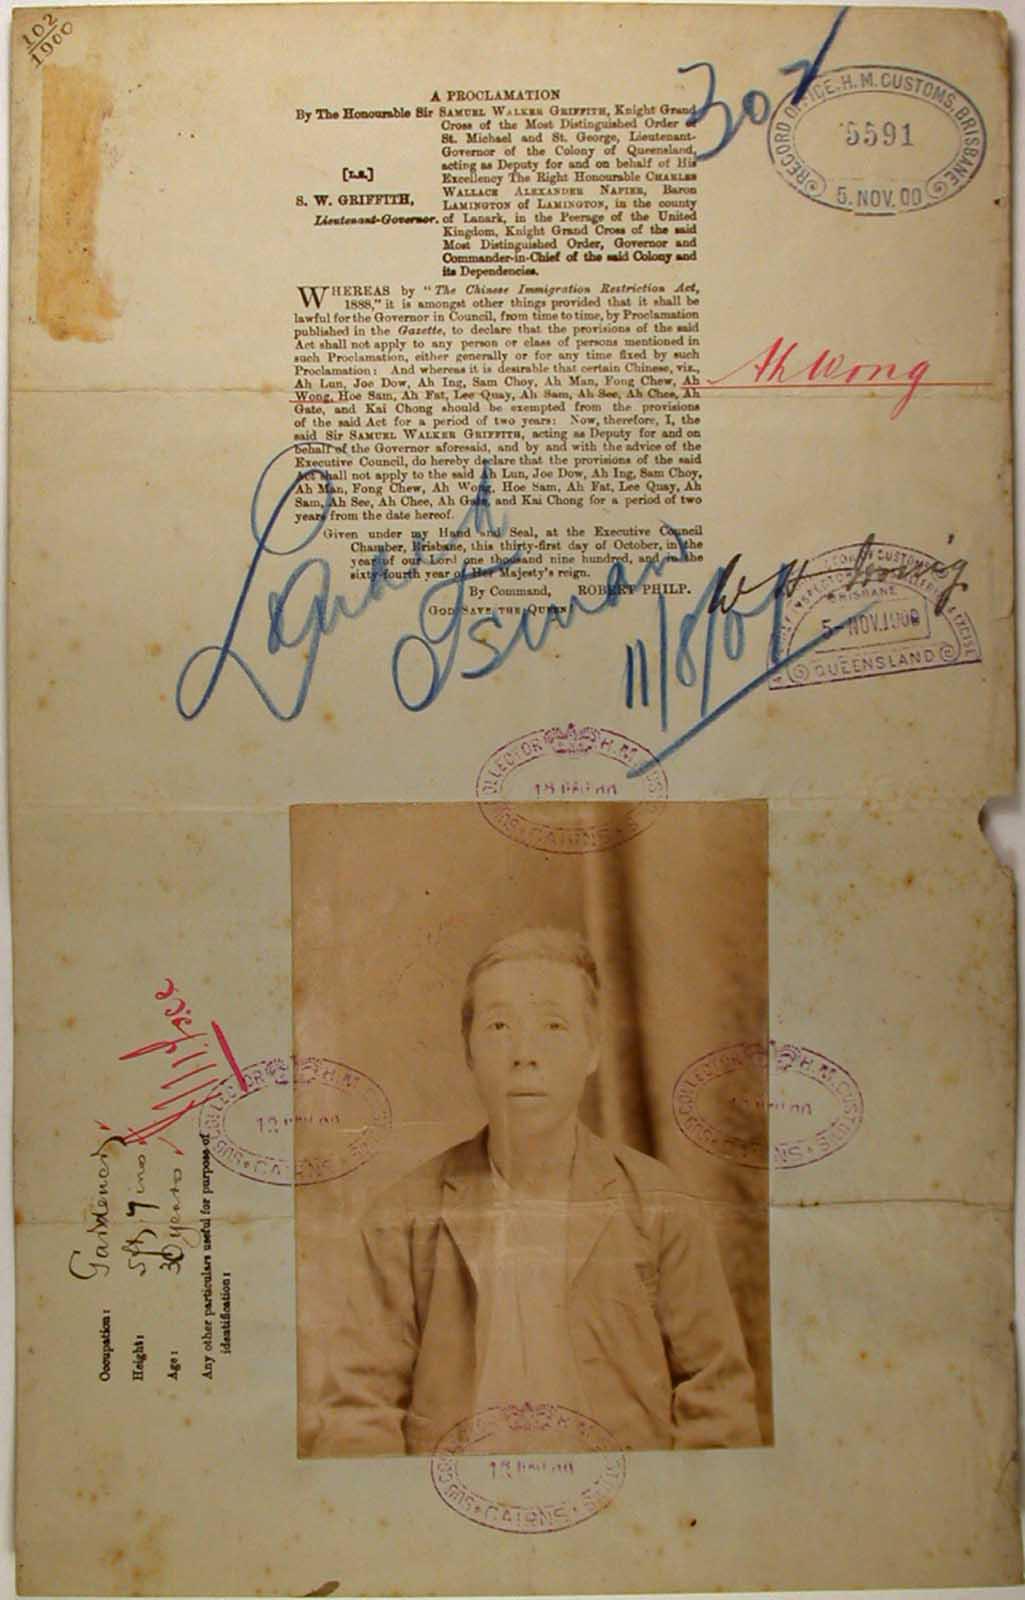 102
1900
A PROCLAMATION
By The Honourable Sir SAMUEL WALKER GRIFFITH, Knight Grand
Cross of the Most Distinguished Order of
St. Michael and St. George, Lieutenant-
Governor of the Colony of Queensland,
acting as Deputy for and on behalf of His
Excellency The Right Honourable CHARLES
WALLACE ALEXANDER NAPIER, Baron
LAMINGTON of LAMINGTON, in the county
of Lanark, in the Peerage of the United
Kingdom, Knight Grand Cross of the said
Most Distinguished Order, Governor and
Commander-in-Chief of the said Colony and
its Dependencies.
[L.S.]
S. W. GRIFFITH,
Lieutenant-Governor.
302
RECORD OFFICE. H. M. CUSTOMS, BRISBANE
5591
5. NOV. 00
WHEREAS by "The Chinese Immigration Restriction Act,
1888," it is amongst other things provided that it shall be
lawful for the Governor in Council, from time to time, by Proclamation
published in the Gazette, to declare that the provisions of the said
Act shall not apply to any person or class of persons mentioned in
such Proclamation, either generally or for any time fixed by such
Proclamation: And whereas it is desirable that certain Chinese, viz.,
Ah Lun, Joe Dow, Ah Ing, Sam Choy, Ah Man, Fong Chew, Ah
Wong, Hoe Sam, Ah Fat, Lee Quay, Ah Sam, Ah See, Ah Chee, Ah
Gate, and Kai Chong should be exempted from the provisions
of the said Act for a period of two years: Now, therefore, I, the
said Sir SAMUEL WALKER GRIFFITH, acting as Deputy for and on
behalf of the Governor aforesaid, and by and with the advice of the
Executive Council, do hereby declare that the provisions of the said
Act shall not apply to the said Ah Lun, Joe Dow, Ah Ing, Sam Choy,
Ah Man, Fong Chew, Ah Wong, Hoe Sam, Ah Fat, Lee Quay, Ah
Sam, Ah See, Ah Chee, Ah Gate, and Kai Chong for a period of two
years from the date hereof.
Ah Wong
Given under my Hand and Seal, at the Executive Council
Chamber, Brisbane, this thirty-first day of October, in the
year of our Lord one thousand nine hundred, and in the
sixty-fourth year of Her Majesty's reign.
By Command, ROBERT PHILP.
GOD SAVE THE QUEEN!
11/8/01
BRISBANE
5-NOV.1900
QUEENSLAND
SUB COLLECTOR H.M. CUSTOMS
CAIRNS
SUB COLLECTOR H.M. CUSTOMS
CAIRNS
SUB COLLECTOR H.M. CUSTOMS
SUB COLLECTOR H.M. CUSTOMS
CAIRNS
Occupation: Gardener
Height: 5ft 7 ins
Age: 30 years
Any other particulars useful for purpose of
identification: